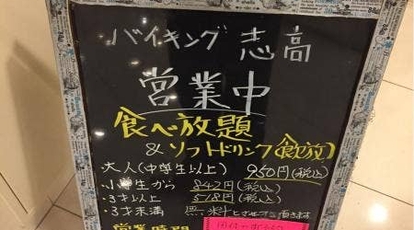 バイキング 志高
営業中
食べ放題
& ソフトドリンク(飲放)
大人(中学生以上) 950円(税込)
・小学生から 842円(税込)
・3才以上 518円(税込)
・3才未満 無料とさせて頂きます
営業時間